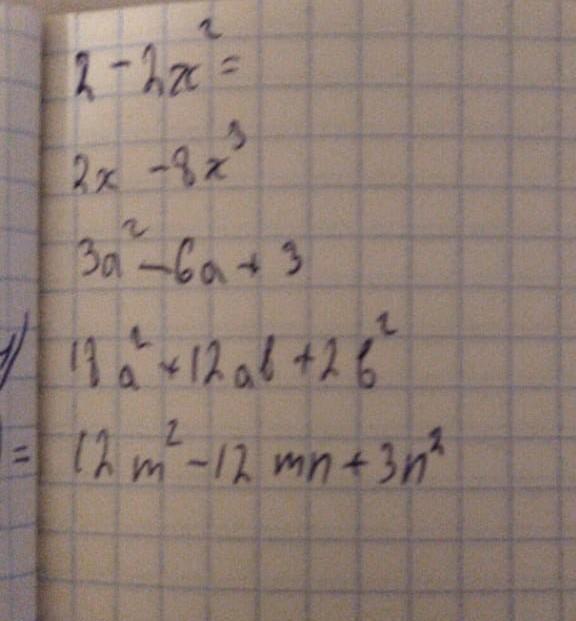 2 - 2x² =
2x - 8x³
3a² - 6a + 3
18a² + 12ab + 2b²
= 12m² - 12mn + 3n²